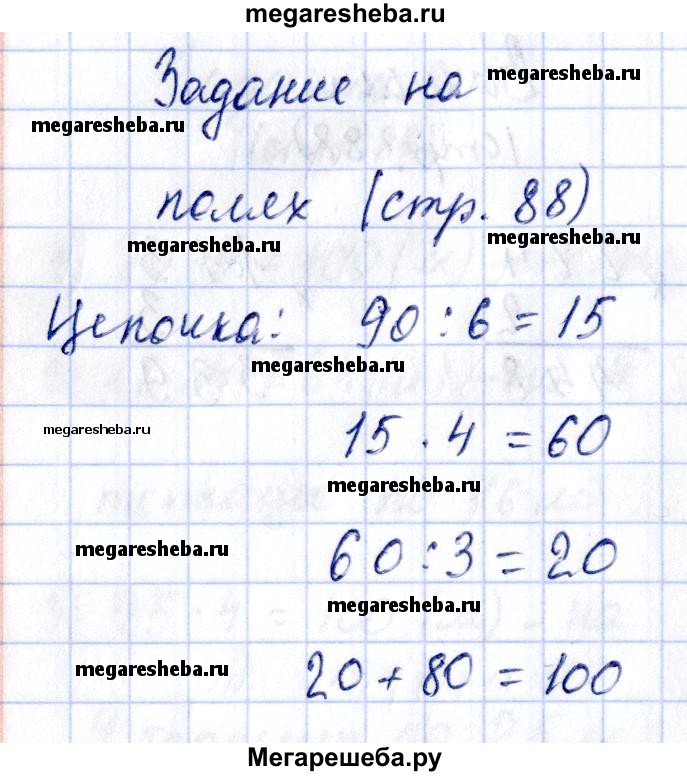 megaresheba.ru
Задание на
megaresheba.ru
megaresheba.ru
полях (стр. 88)
megaresheba.ru
megaresheba.ru
Цепочка: 90 : 6 = 15
megaresheba.ru
megaresheba.ru
15 · 4 = 60
megaresheba.ru
megaresheba.ru
60 : 3 = 20
megaresheba.ru
megaresheba.ru
20 + 80 = 100
Мегарешеба.ру